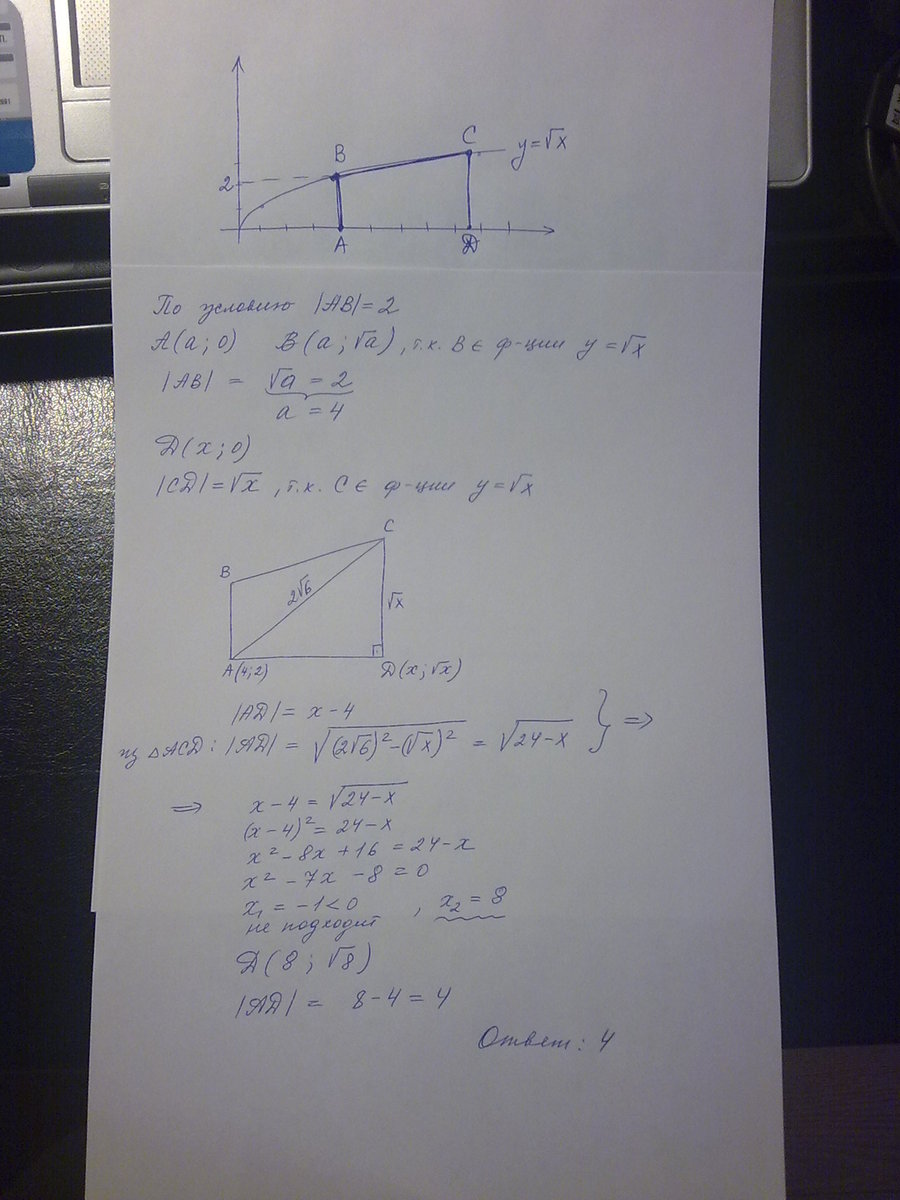 B
C
y=√x
2
A
D
По условию |AB|=2
A(a;0) B(a;√a), т.к. B∈ ф-ции y=√x
|AB| = √a = 2
a = 4
D(x;0)
|CD|=√x, т.к. C∈ ф-ции y=√x
C
B
2√6
√x
A(4;2)
D(x;√x)
|AD|= x-4
из △ACD: |AD| = √((2√6)²-(√x)²) = √(24-x) } ⇒
⇒ x-4 = √(24-x)
(x-4)² = 24-x
x²-8x+16 = 24-x
x² -7x -8 = 0
x₁ = -1<0 , x₂ = 8
не подходит
D(8;√8)
|AD| = 8-4 = 4
Ответ: 4